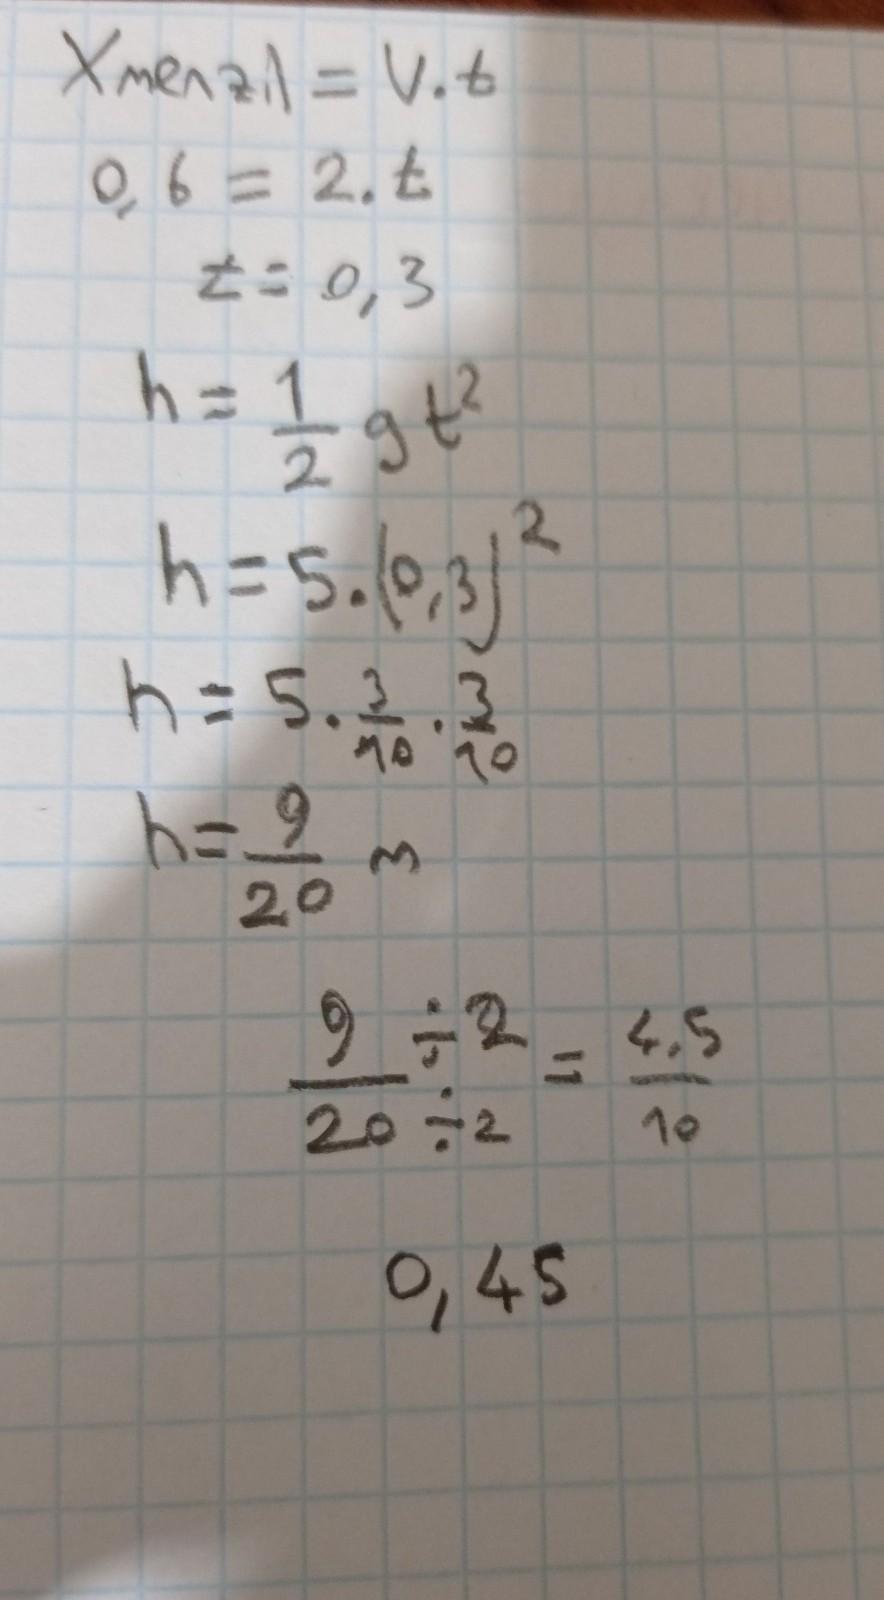 Xmenzil = V.t
0,6 = 2.t
t = 0,3
h = 1/2 gt²
h = 5.(0,3)²
h = 5 . 3/10 . 3/10
h = 9/20 m
9/20 ÷2/÷2 = 4,5/10
0,45